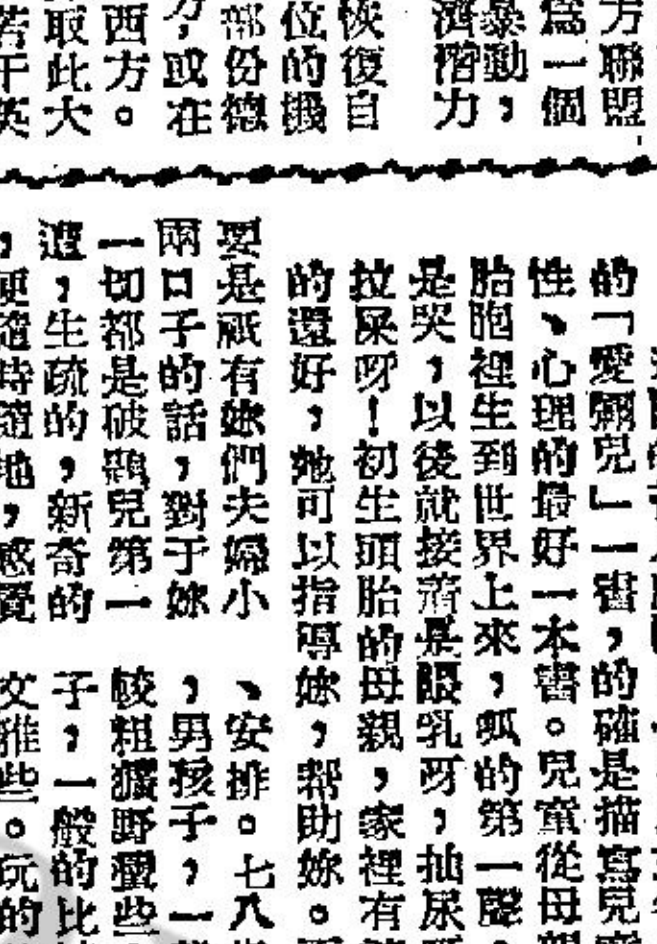 方聯盟
爲一個
暴動，
濟潛力
恢復自
位的機
部份德
方，或在
西方。
取此大
若干英
的「愛彌兒」一書，的確是描寫兒
性、心理的最好一本書。兒童從母
胎胞裡生到世界上來，呱的第一聲
是哭，以後就接着是餵乳呀，抽尿
拉屎呀！初生頭胎的母親，家裡有
的還好，她可以指導妳，幫助妳。
要是祇有妳們夫婦小
兩口子的話，對于妳
一切都是破題兒第一
遭，生疏的，新奇的
，便隨時隨地，感覺
、安排。七八
，男孩子，一
較粗獷野蠻些
子，一般的比
文雅些。玩的